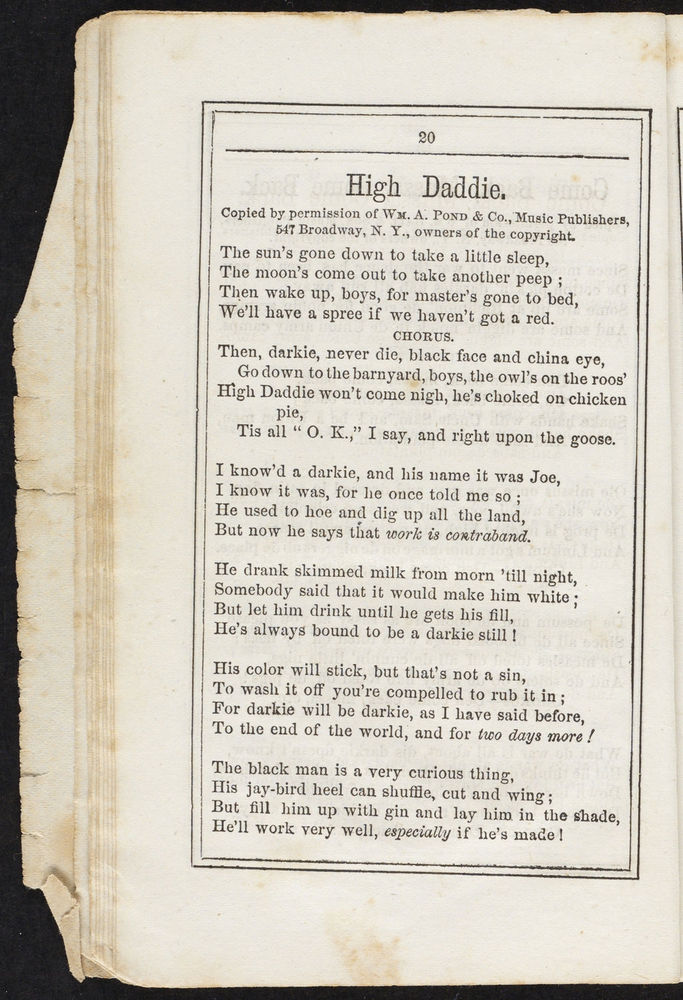 20
High Daddie.
Copied by permission of WM. A. POND & Co., Music Publishers,
547 Broadway, N. Y., owners of the copyright.
The sun's gone down to take a little sleep,
The moon's come out to take another peep ;
Then wake up, boys, for master's gone to bed,
We'll have a spree if we haven't got a red.
CHORUS.
Then, darkie, never die, black face and china eye,
Go down to the barnyard, boys, the owl's on the roos'
High Daddie won't come nigh, he's choked on chicken
pie,
Tis all " O. K.," I say, and right upon the goose.
I know'd a darkie, and his name it was Joe,
I know it was, for he once told me so ;
He used to hoe and dig up all the land,
But now he says that work is contraband.
He drank skimmed milk from morn 'till night,
Somebody said that it would make him white ;
But let him drink until he gets his fill,
He's always bound to be a darkie still !
His color will stick, but that's not a sin,
To wash it off you're compelled to rub it in ;
For darkie will be darkie, as I have said before,
To the end of the world, and for two days more !
The black man is a very curious thing,
His jay-bird heel can shuffle, cut and wing ;
But fill him up with gin and lay him in the shade,
He'll work very well, especially if he's made !